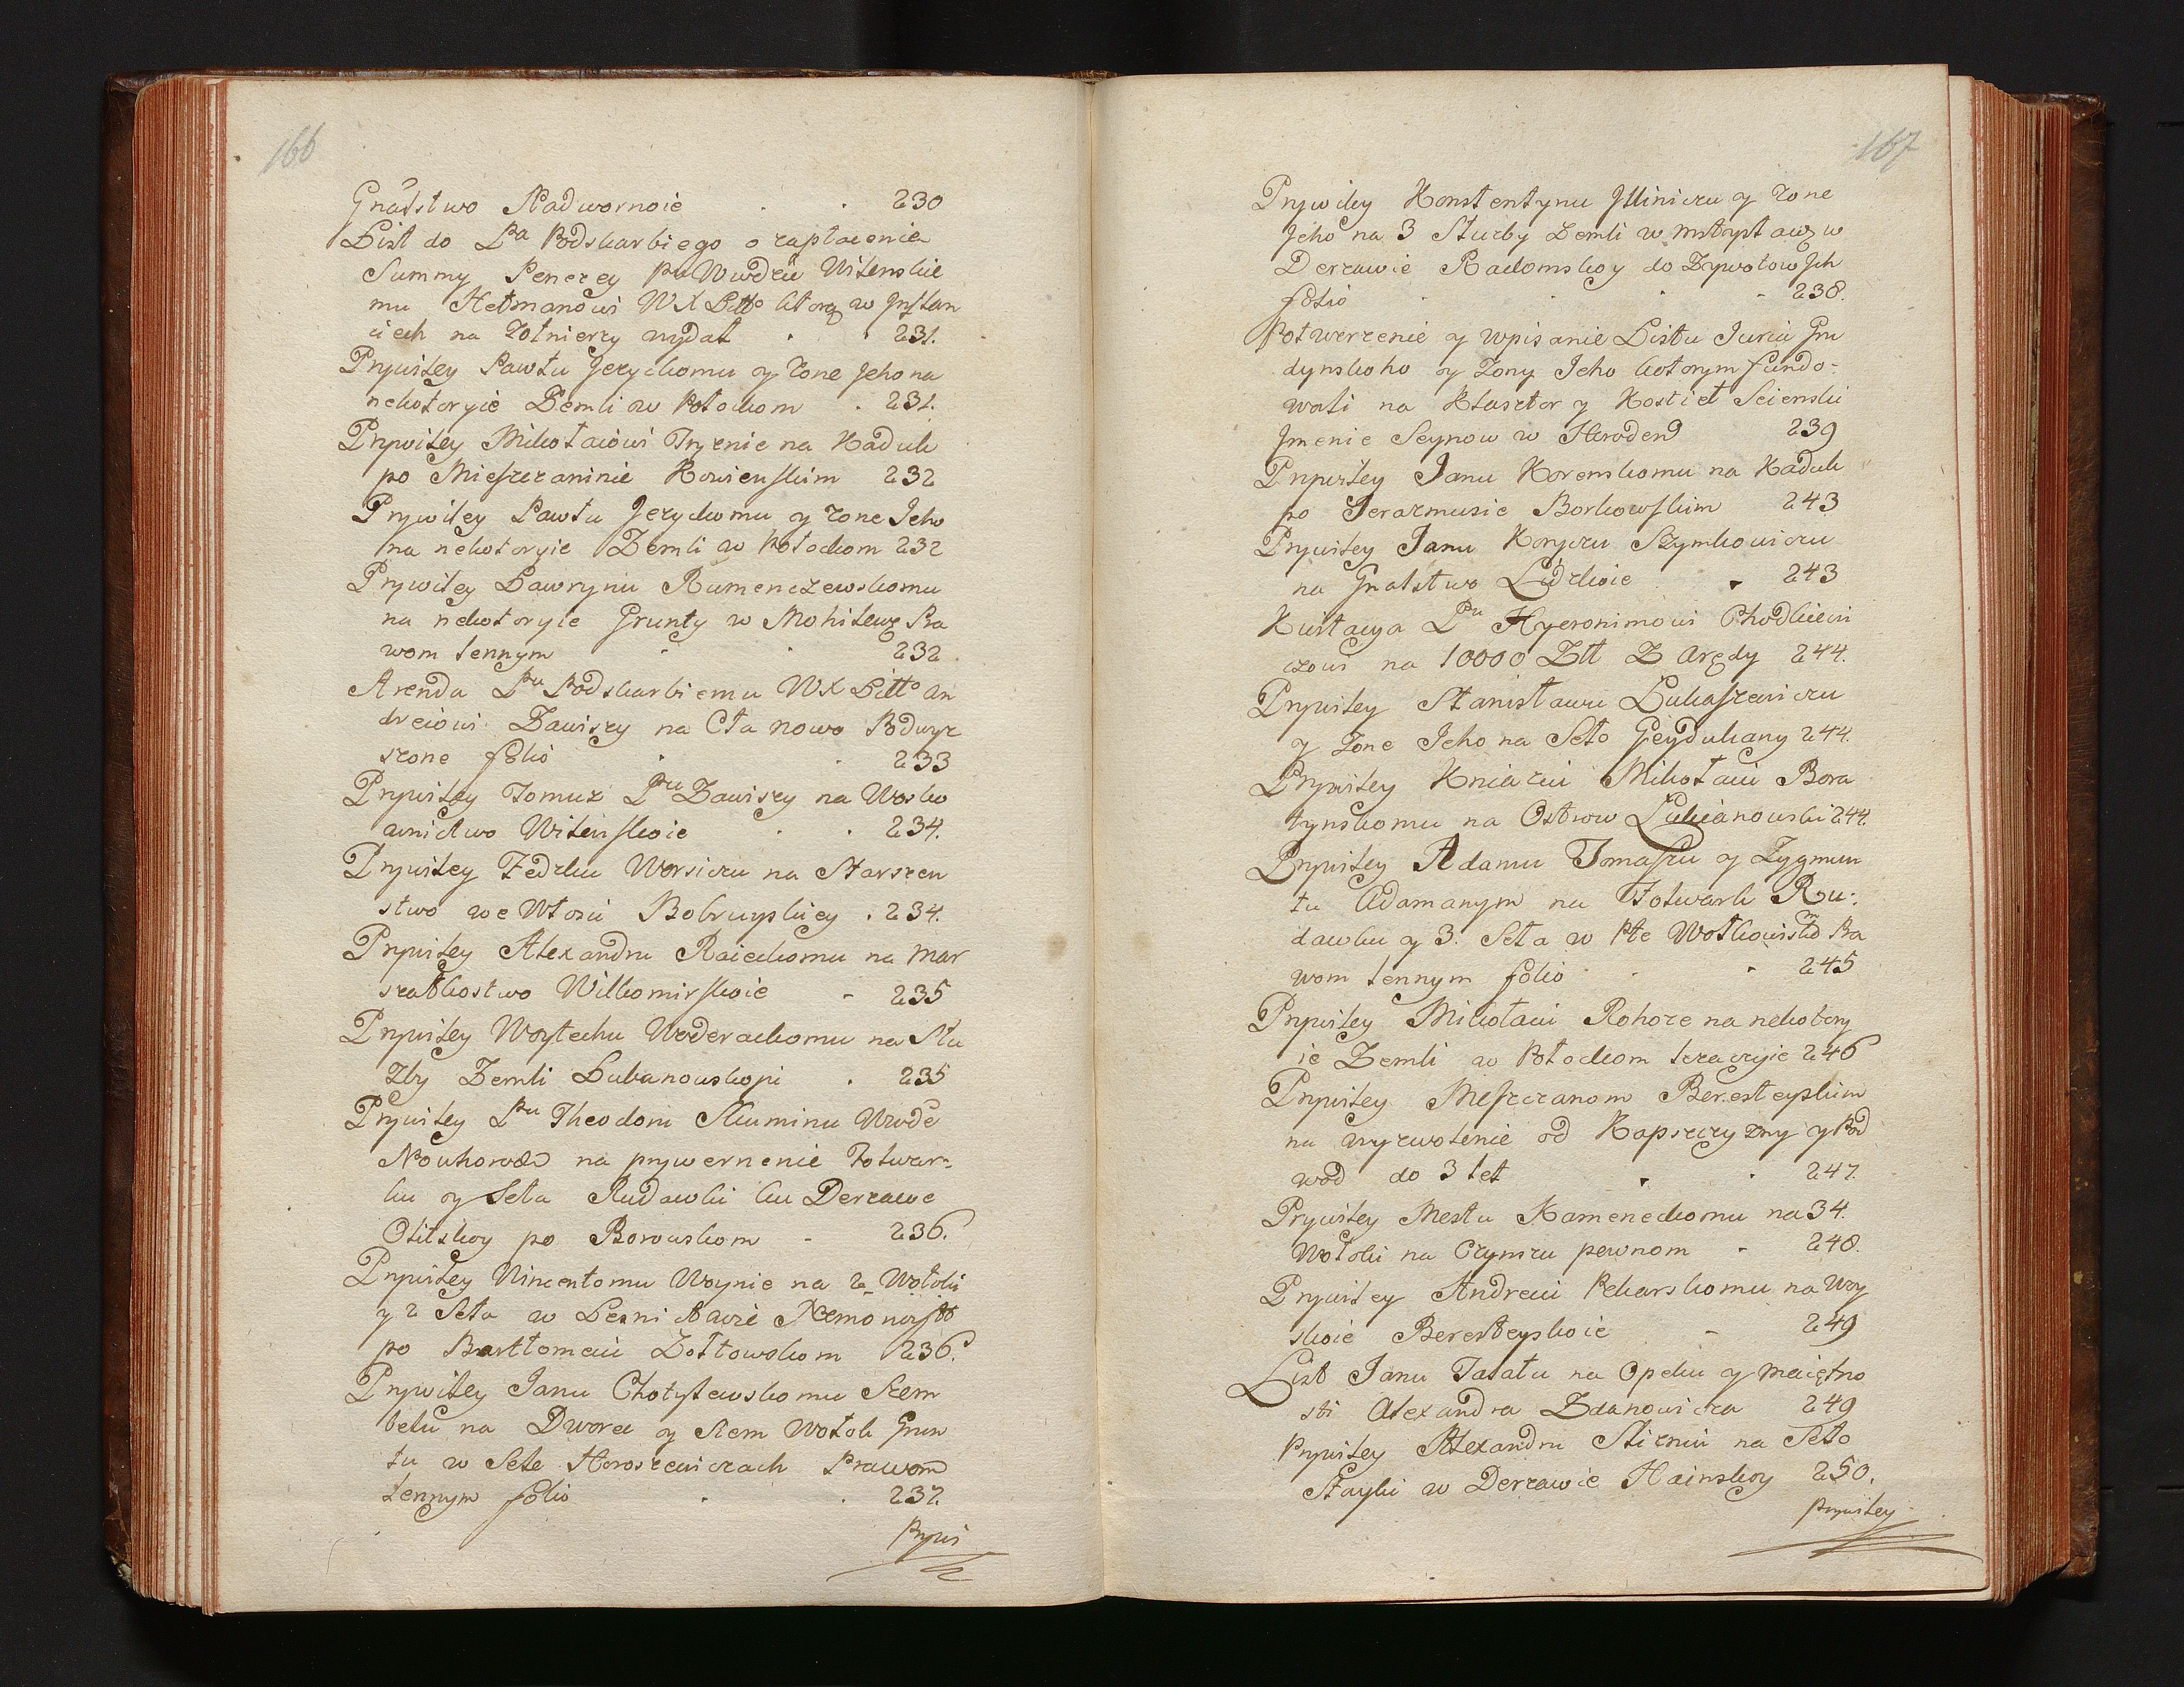 166
Gnátstwo Nadwornoie . . 230
List do Pa Podskarbiego o zapłacenie
Summy Penezey Pu Wwdzie Witenskie
mu Hetmanowi WX Litto ktorą w Inflan
ciech na Zołnierzy wydał . . 231.
Prywiley Pawłu Jeryckomu y zone Jeho na
nekotoryie Zemli w Połockom . 231.
Prywiley Mikołaiowi Tryznie na Kaduk
po Mieszczaninie Kowienskim 232
Prywiley Pawłu Jeryckomu y zone Jeho
na nekotoryie Zemli w Połockom 232
Prywiley Ławrynu Rumenczewskomu
na nekotoryie Grunty w Mohilewe Pra
wom lennym . . 232
Arenda Pu Podskarbiemu WX Litto An
dreiowi Zawiszy na Cła nowo Podwyz
szone folio . . 233
Prywiley Tomuz Pu Zawiszy na Wosko
wnictwo Witenskoie . . 234.
Prywiley Fedzku Worsiczu na Starszen
stwo we Włosti Bobruyskiey . 234.
Prywiley Alexandru Raieckomu na Mar
szałkostwo Wilkomirskoie - 235
Prywiley Woytechu Woderackomu na Słu
zby Zemli Łubanowskoyi . 235
Prywiley Pu Theodoru Skuminu Wwode
Nouhorodo na prywernenie Folwar-
ku y Seła Rudawki ku Derzawe
Olitskoy po Borowskom - 236.
Prywiley Wincentomu Woynie na 2 Wołoki
y 2 Seła w Lesnictwie Nemonoyto
po Bartłomeiu Zołtowskom 236.
Prywiley Janu Chotystawskomu Szem
belu na Dworec y Sem Wołok Grun
tu w Sele Horoszewiczach Prawom
lennym folio . . 237.
Prywi
167
Prywiley Konstentynu Illiniczu y zone
Jeho na 3 Słuzby Zemli w Mstystawe w
Derzawie Radomskoy do Zywotow Jch
folio . . . - 238.
Potwerzenie y wpisanie Listu Juria Gru
dynskoho y Zony Jeho kotorym fundo-
wali na Klasztor y Kosciel Seienski
Jmenie Seynow w Horoden 239
Prywiley Janu Korenskomu na Kaduk
po Jerazmusie Borkowskim 243
Prywiley Janu Koryczu Szymkowiczu
na Gnatstwo Lidzkoie . 243
Kwitacya Pu Hyeronimowi Chodkiewi
czowi na 10000 Złł Z Arędy 244.
Prywiley Stanisławu Łukaszewiczu
y Zone Jeho na Seło Geydukany 244.
Prywiley Kniaziu Mikołaiu Bora
tynskomu na Ostrow Lukianowski 244.
Prywiley Adamu Tomaszu y Zygmun
tu Adamanym na Folwark Ru-
dawku y 3. Seła w Pte Wołkowisko Pra
wom lennym folio . . 245
Prywiley Mikołaiu Rohoze na nekotory
ie Zemli w Połockom lezaczyie 246
Prywiley Meszczanom Beresteyskim
na wyzwolenie od Kapszczyzny y Pod
wod do 3 let . . 247.
Prywiley Mestu Kameneckomu na 34.
Wołoki na Czynszu pewnom - 248.
Prywiley Andreiu Pekarskomu na Woy
skoie Beresteyskoie - 249
List Janu Tatału na Opeku y Maiętno
sti Alexandra Zdanowicza 249
Prywiley Alexandru Sliznu na Seło
Stayki w Derzawie Hainskoy 250.
Prywiley